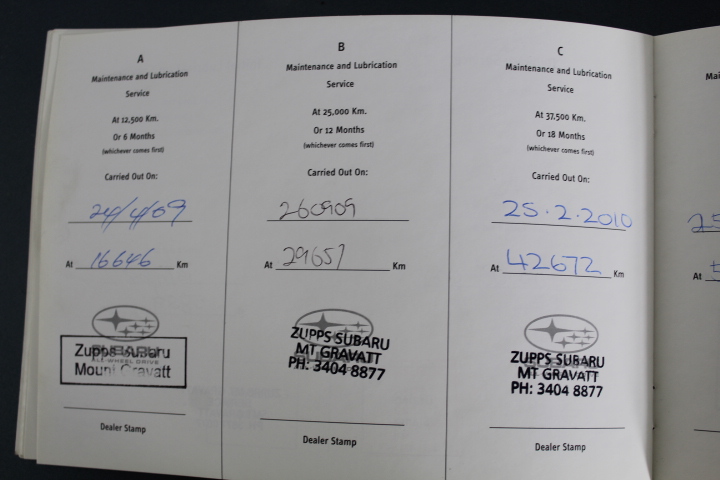 A
Maintenance and Lubrication
Service
At 12,500 Km.
Or 6 Months
(whichever comes first)
Carried Out On:
24/4/09
At 16646 Km
SUBARU
ALL-WHEEL DRIVE
Zupps Subaru
Mount Gravatt
Dealer Stamp
B
Maintenance and Lubrication
Service
At 25,000 Km.
Or 12 Months
(whichever comes first)
Carried Out On:
260909
At 29657 Km
ZUPPS SUBARU
MT GRAVATT
PH: 3404 8877
Dealer Stamp
C
Maintenance and Lubrication
Service
At 37,500 Km.
Or 18 Months
(whichever comes first)
Carried Out On:
25.2.2010
At 42672 Km
ZUPPS SUBARU
MT GRAVATT
PH: 3404 8877
Dealer Stamp
At